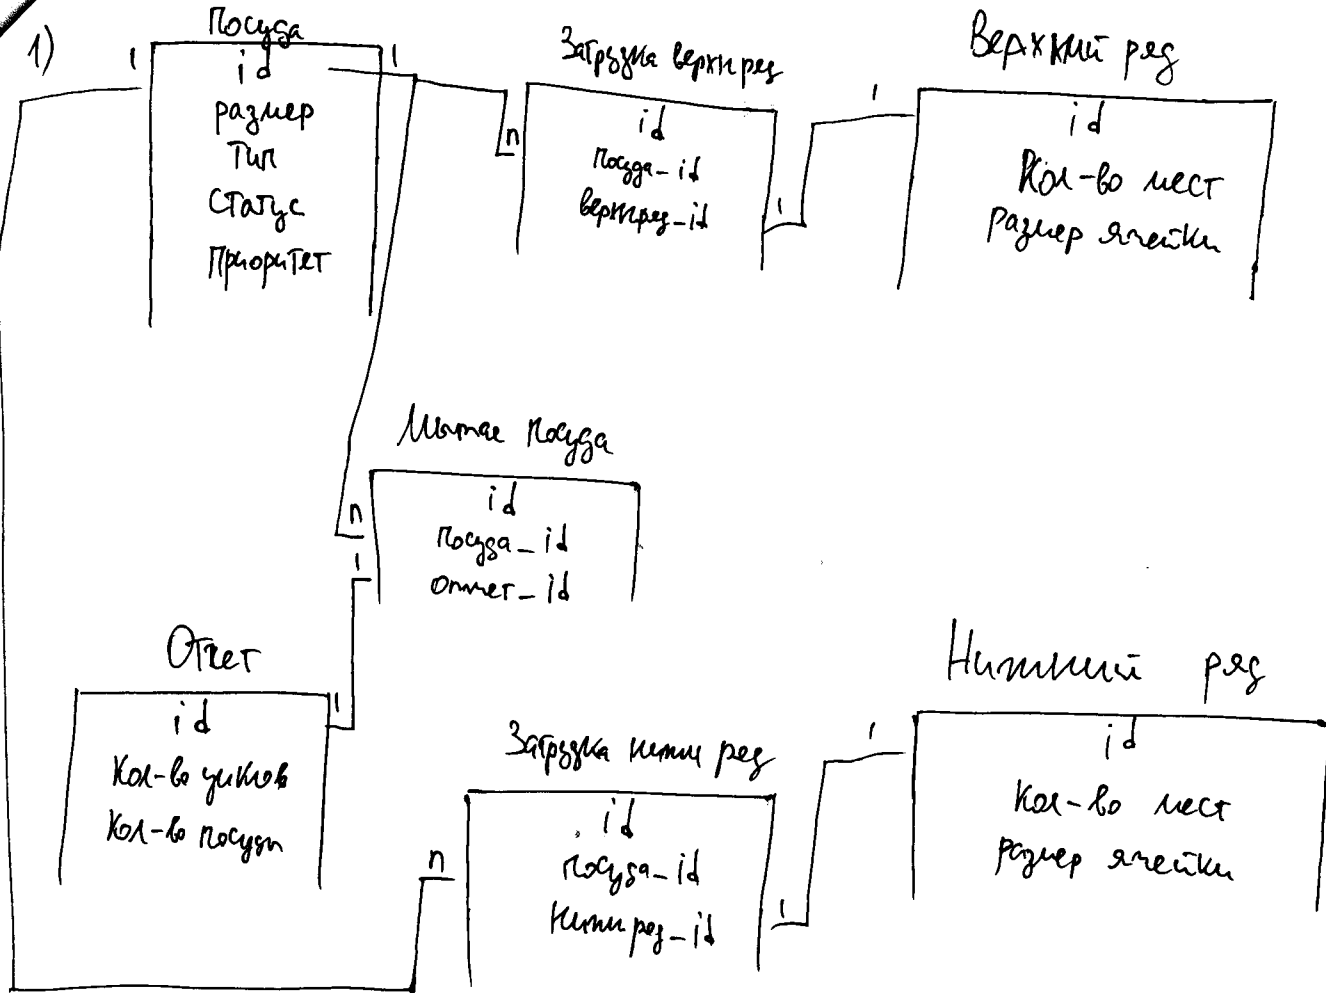 1)
Посуда
1
1
id
размер
Тип
Статус
Приоритет
Загрузка верхн ряд
n
id
посуда_id
верхнряд_id
1
1
Верхний ряд
id
Кол-во мест
размер ячейки
Мытая посуда
n
1
id
посуда_id
отчет_id
Отчет
1
id
Кол-во циклов
Кол-во посуды
Загрузка нижн ряд
n
id
посуда_id
Нижнряд_id
1
1
Нижний ряд
id
Кол-во мест
размер ячейки